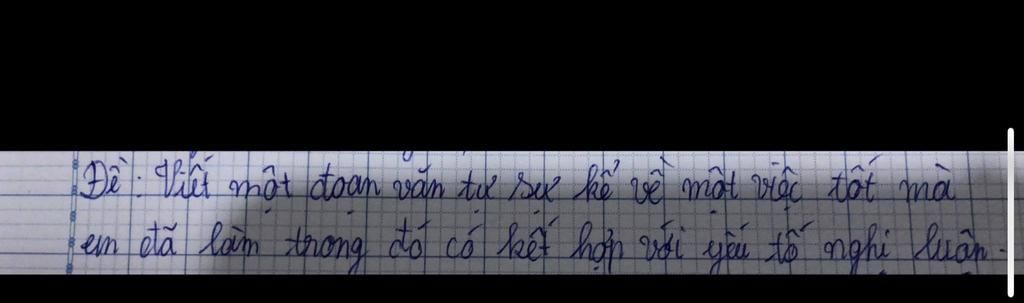 Đề: Viết một đoạn văn tự sự kể về một việc tốt mà
em đã làm trong đó có kết hợp với yếu tố nghị luận.